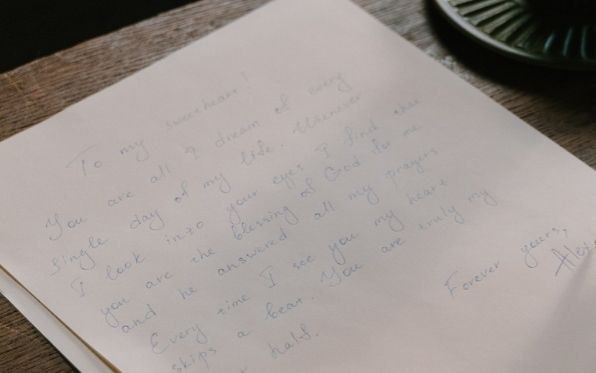 To my sweetheart!
You are all I dream of every
single day of my life. Whenever
I look into your eyes I find that
you are the blessing of God for me
and he answered all my prayers
Every time I see you my heart
skips a beat. You are truly my
half.
Forever yours,